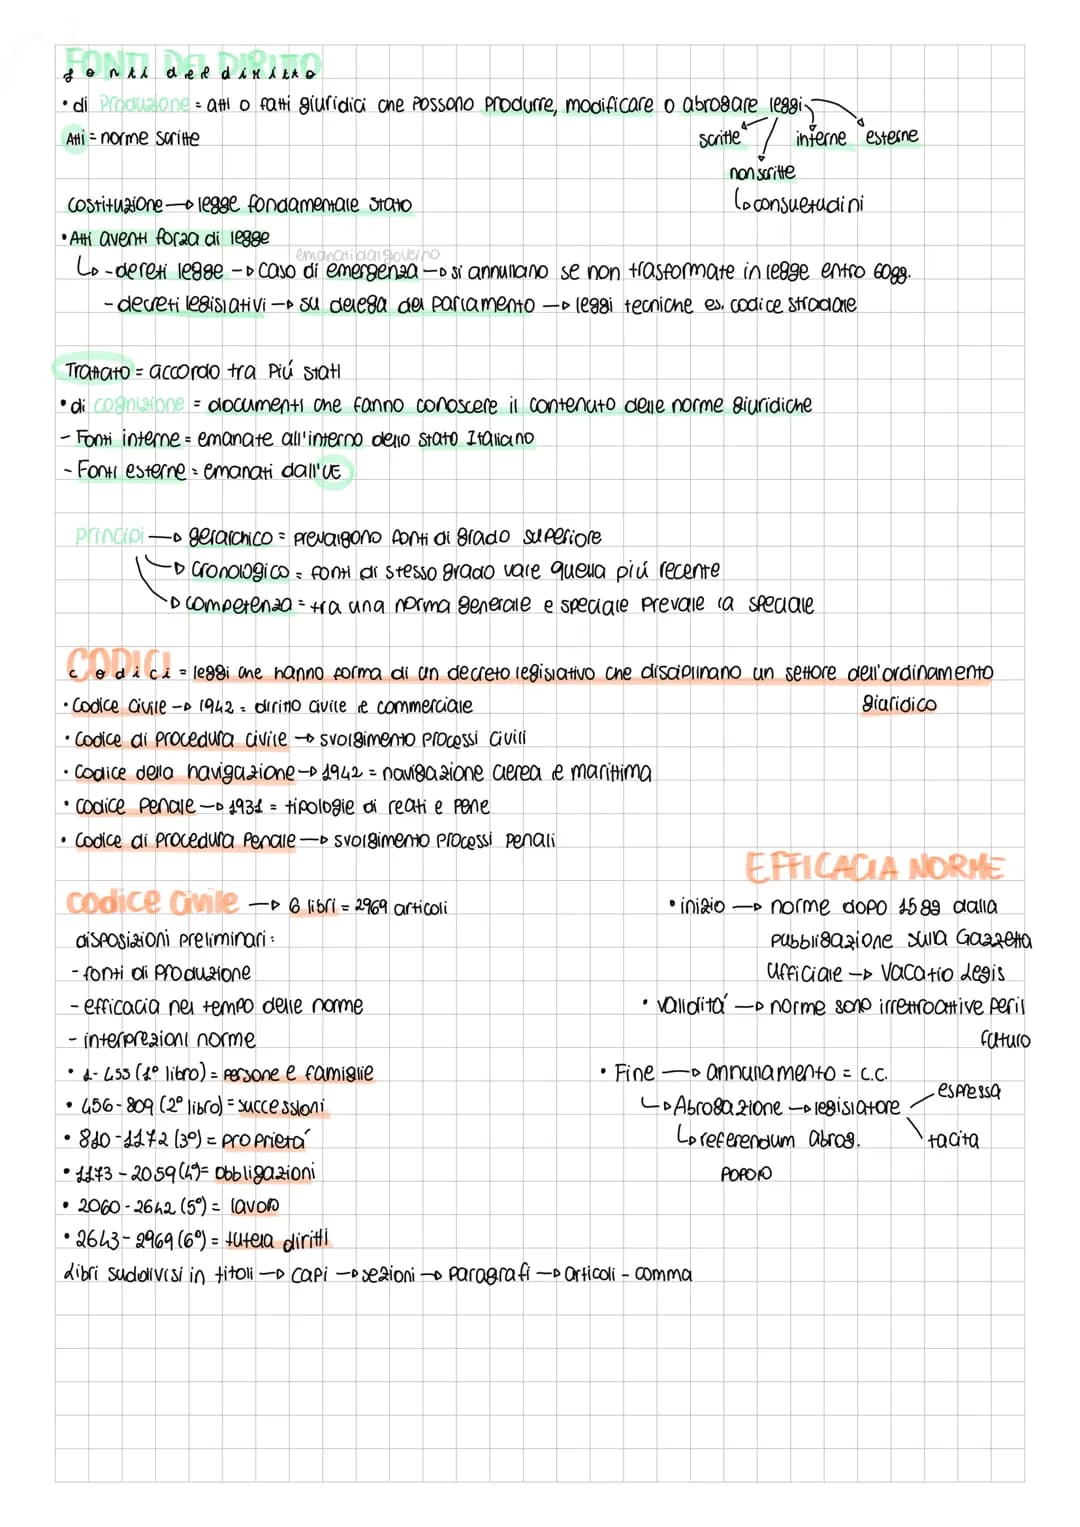 FONTI DEL DIRITTO
fonti del diritto
• di Produzione = atti o fatti giuridici che possono produrre, modificare o abrogare leggi
Atti = norme scritte
scritte interne esterne
non scritte
↳ consuetudini
costituzione → legge fondamentale stato
• Atti aventi forza di legge
emanati dal governo
↳ - dereti legge → caso di emergenza → si annullano se non trasformate in legge entro 60gg.
- decreti legislativi → su delega del parlamento → leggi tecniche es. codice stradale
Trattato = accordo tra piú stati
• di cognizione = documenti che fanno conoscere il contenuto delle norme giuridiche
- Fonti interne = emanate all'interno dello stato Italiano
- Fonti esterne = emanati dall'UE
principi → gerarchico = prevalgono fonti di grado superiore
→ cronologico = fonti di stesso grado vale quella piú recente
→ competenza = tra una norma generale e speciale prevale la speciale
CODICI
codici = leggi che hanno forma di un decreto legislativo che disciplinano un settore dell'ordinamento
giuridico
• Codice Civile → 1942 = diritto civile e commerciale
• Codice di procedura civile → svolgimento processi civili
• Codice della navigazione → 1942 = navigazione aerea e marittima
• Codice Penale → 1931 = tipologie di reati e pene
• Codice di procedura Penale → svolgimento processi penali
EFFICACIA NORME
codice Civile → 6 libri = 2969 articoli
disposizioni preliminari:
- fonti di produzione
- efficacia nel tempo delle norme
- interprezioni norme
• 1-455 (1° libro) = persone e famiglie
• 456-809 (2° libro) = successioni
• 810-1172 (3°) = proprietá
• 1173-2059 (4°) = obbligazioni
• 2060-2642 (5°) = lavoro
• 2643-2969 (6°) = tutela diritti
Libri suddivisi in titoli → capi → sezioni → paragrafi → articoli - comma
• inizio → norme dopo 15gg dalla
pubbligazione sulla Gazzetta
Ufficiale → Vacatio Legis
• validitá → norme sono irretroattive per il
futuro
• Fine → annullamento = c.c.
↳ Abrogazione → legislatore espressa
tacita
↳ referendum abrog.
popolo